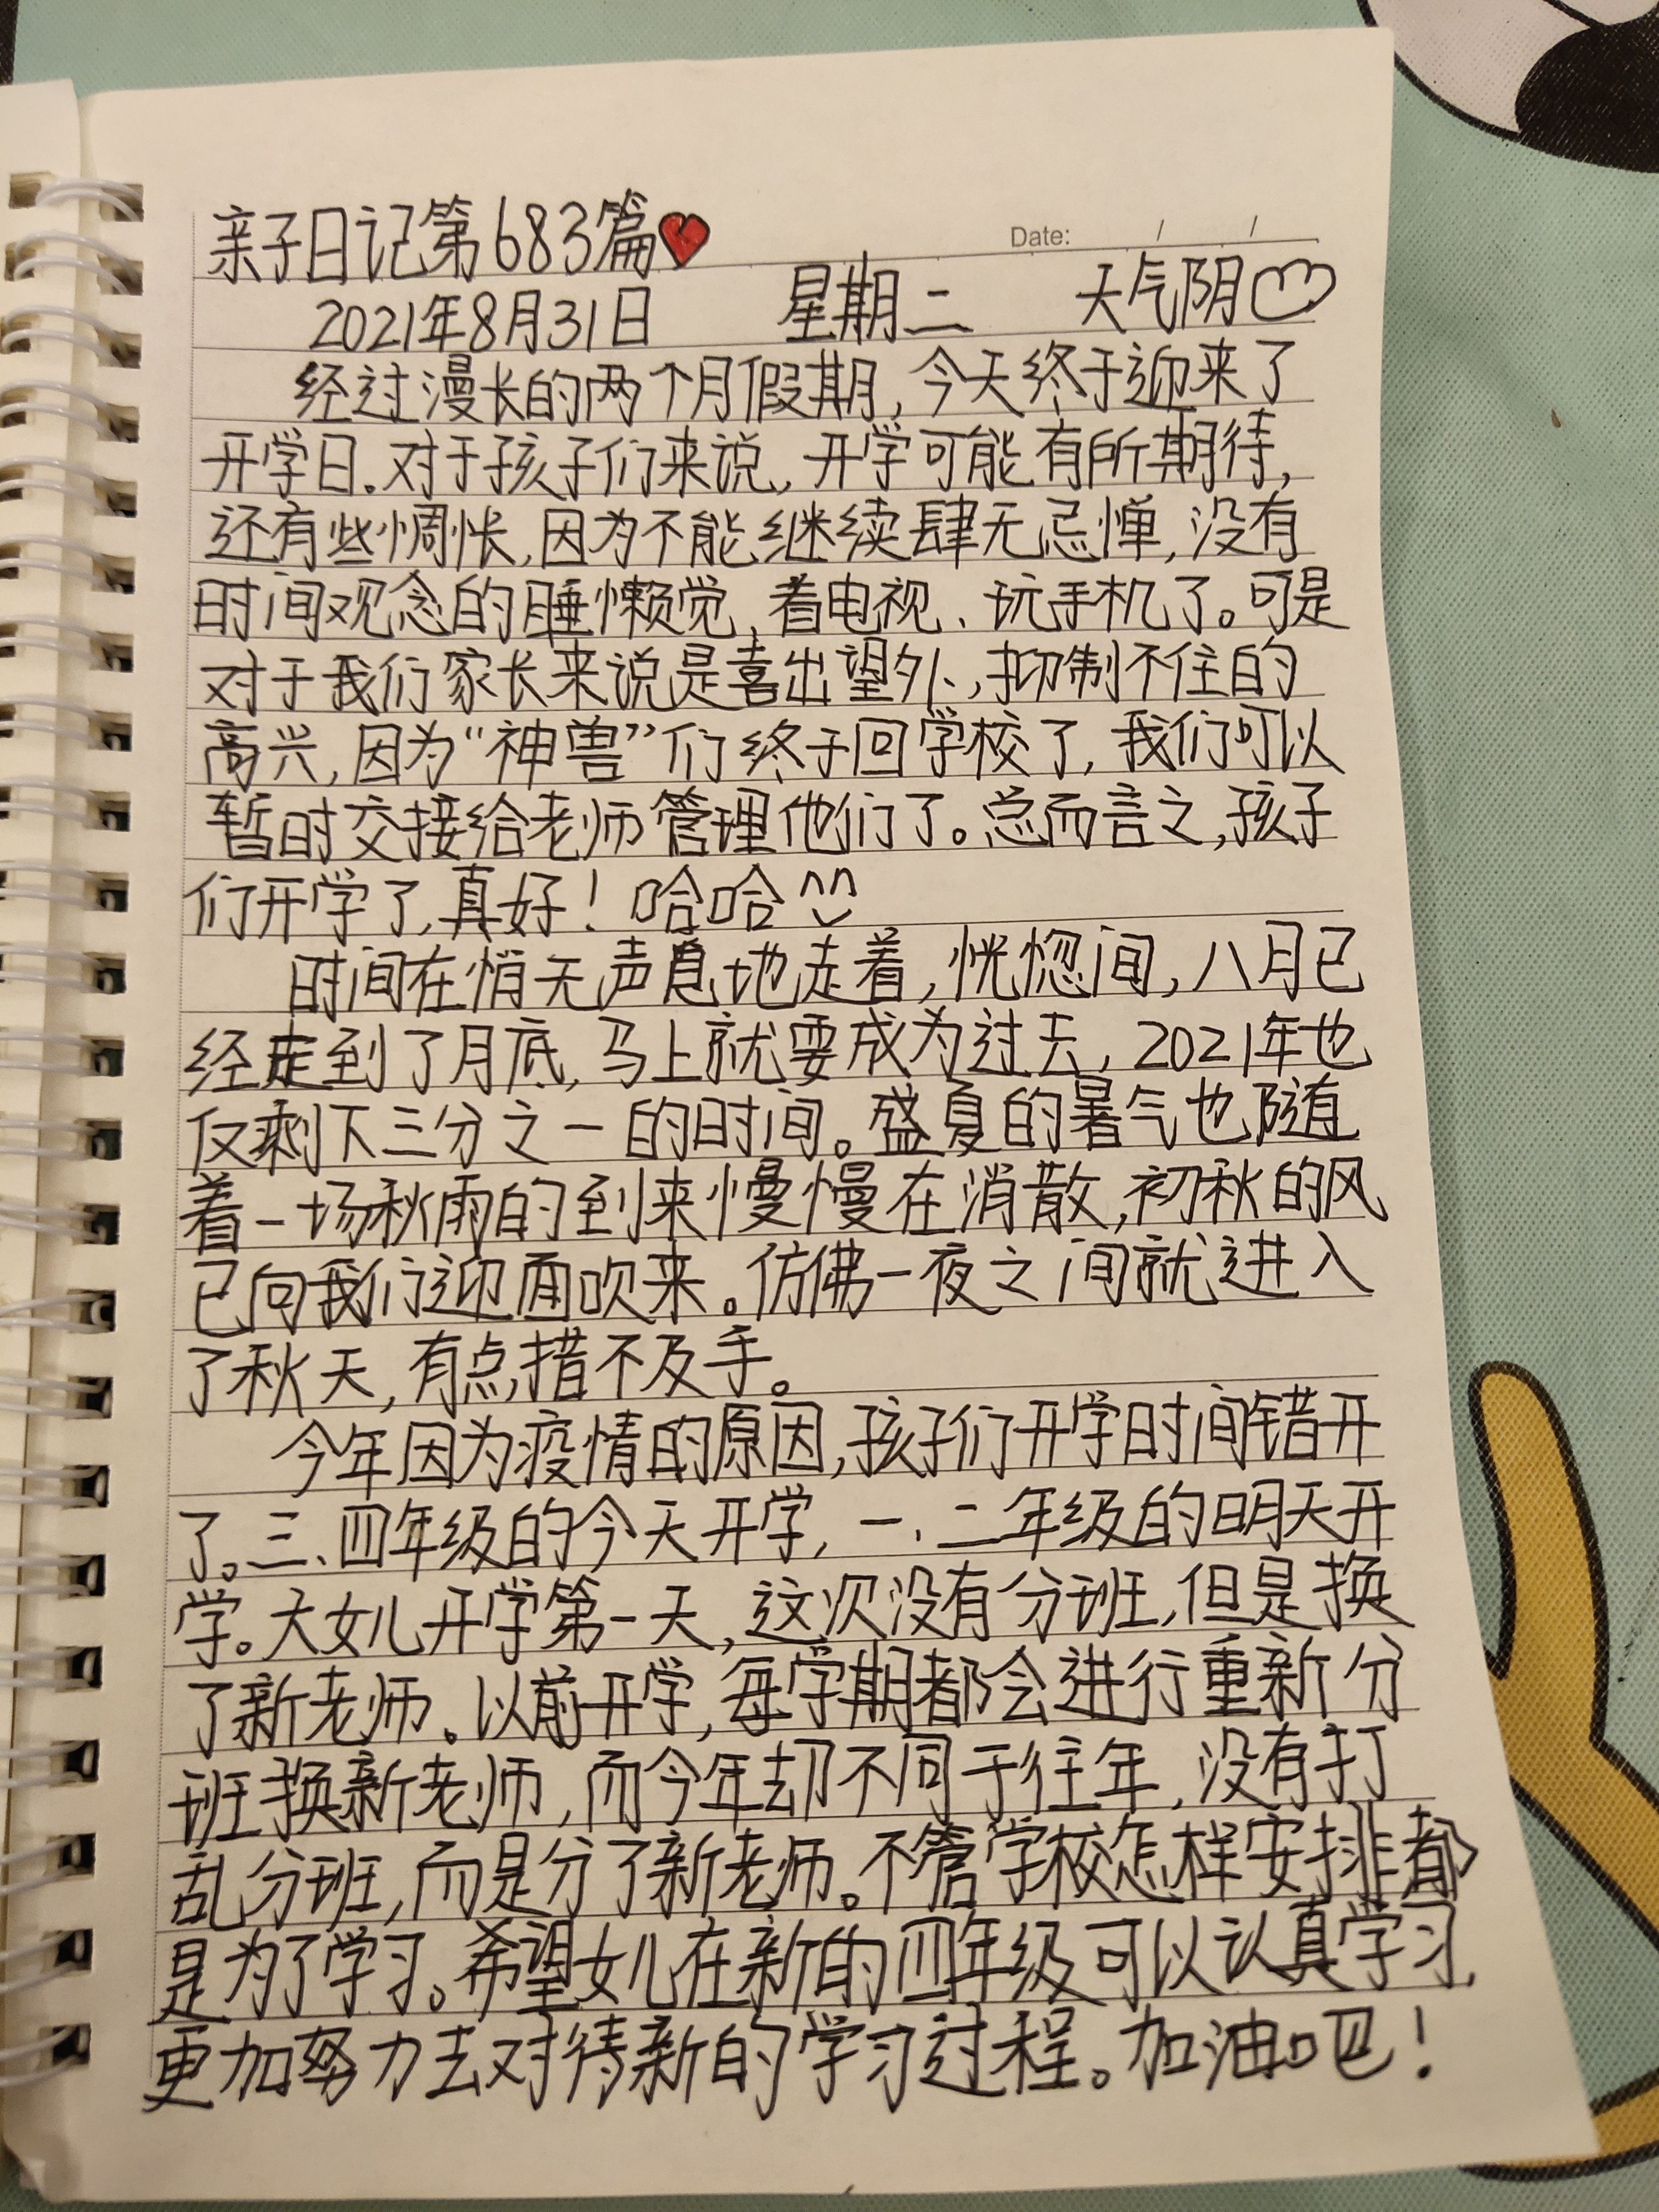 亲子日记第683篇
Date: / /
2021年8月31日 星期二 天气阴
经过漫长的两个月假期,今天终于迎来了
开学日.对于孩子们来说,开学可能有所期待,
还有些惆怅,因为不能继续肆无忌惮,没有
时间观念的睡懒觉,着电视、玩手机了。可是
对于我们家长来说是喜出望外,抑制不住的
高兴,因为“神兽”们终于回学校了,我们可以
暂时交接给老师管理他们了。总而言之,孩子
们开学了,真好!哈哈
时间在悄无声息地走着,恍惚间,八月已
经走到了月底,马上就要成为过去,2021年也
仅剩下三分之一的时间。盛夏的暑气也随
着一场秋雨的到来慢慢在消散,初秋的风
已向我们迎面吹来。仿佛一夜之间就进入
了秋天,有点措不及手。
今年因为疫情的原因,孩子们开学时间错开
了。三、四年级的今天开学,一、二年级的明天开
学。大女儿开学第一天,这次没有分班,但是换
了新老师。以前开学,每学期都会进行重新分
班换新老师,而今年却不同于往年,没有打
乱分班,而是分了新老师。不管学校怎样安排都
是为了学习。希望女儿在新的四年级可以认真学习,
更加努力去对待新的学习过程。加油吧!